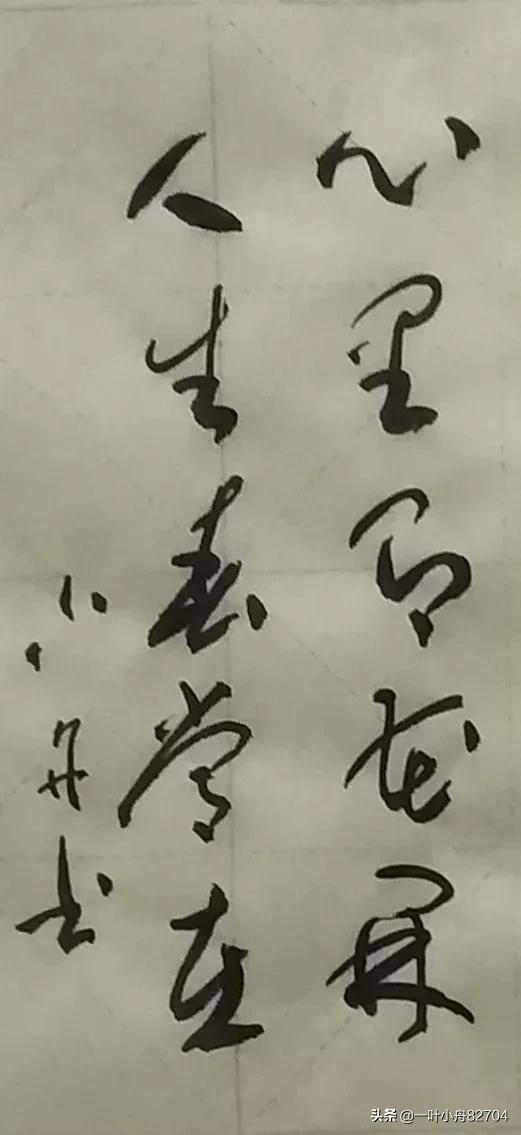 心里有花開
人生春常在
小舟书
头条 @一叶小舟82704